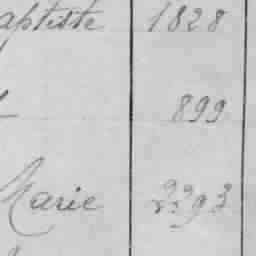 aptiste 1828
899
Marie